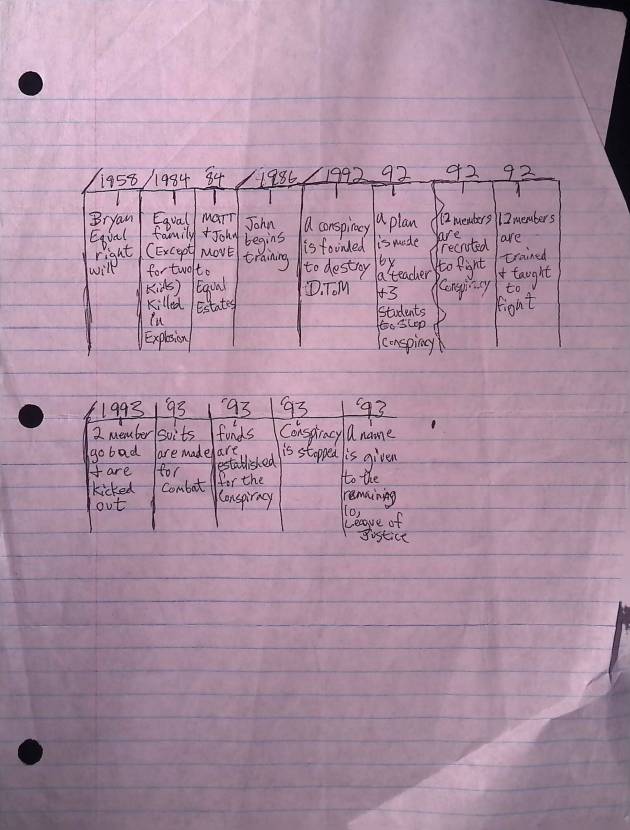 1958 1984 '84 1986 1992 92 92 92
Bryan
Equal
right
will
Equal
family
(Except
for two
Kids)
Killed
in
Explosion
MATT
+ John
MOVE
to
Equal
Estates
John
begins
training
A conspiracy
is founded
to destroy
D.T.M
A plan
is made
by
a teacher
+3
Students
to stop
Conspiracy
12 members
are
recruted
to fight
Conspiracy
12 members
are
trained
+ taught
to
fight
1993 '93 '93 '93 '93
2 member
go bad
+ are
kicked
out
suits
are made
for
Combat
funds
are
established
for the
Conspiracy
Conspiracy
is stopped
A name
is given
to the
remaining
10,
League of
Justice